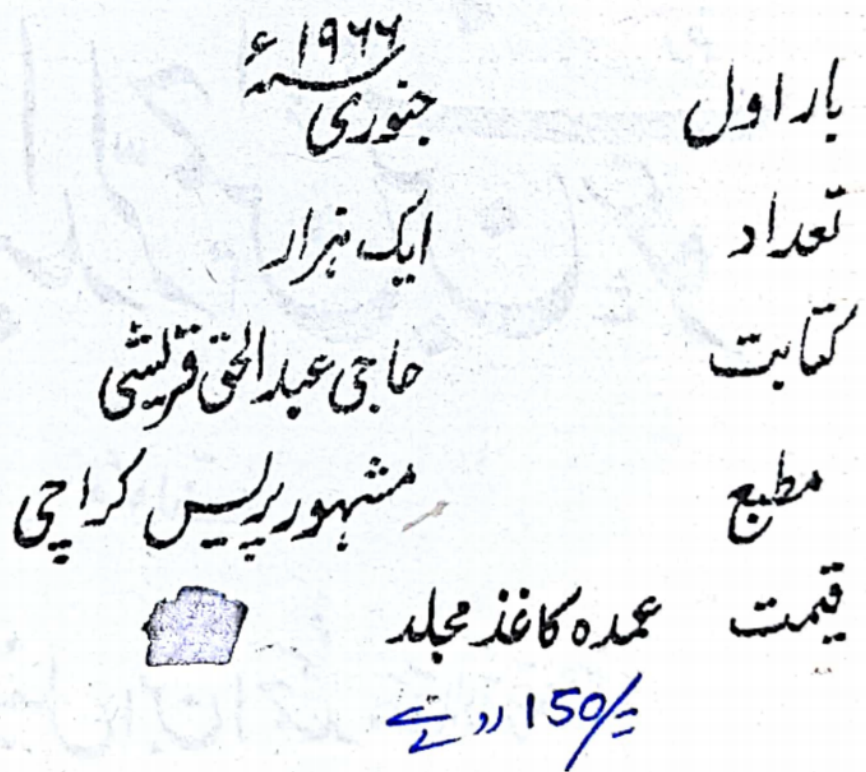 بار اول جنوری ۱۹۶۶ء
تعداد ایک ہزار
کتابت حاجی عبدالحق قریشی
مطبع مشہور پریس کراچی
قیمت عمدہ کاغذ مجلد
150/= روپے